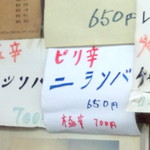 650円
ピリ辛
ニラソバ
650円
極辛 700円
辛
ンソバ
700